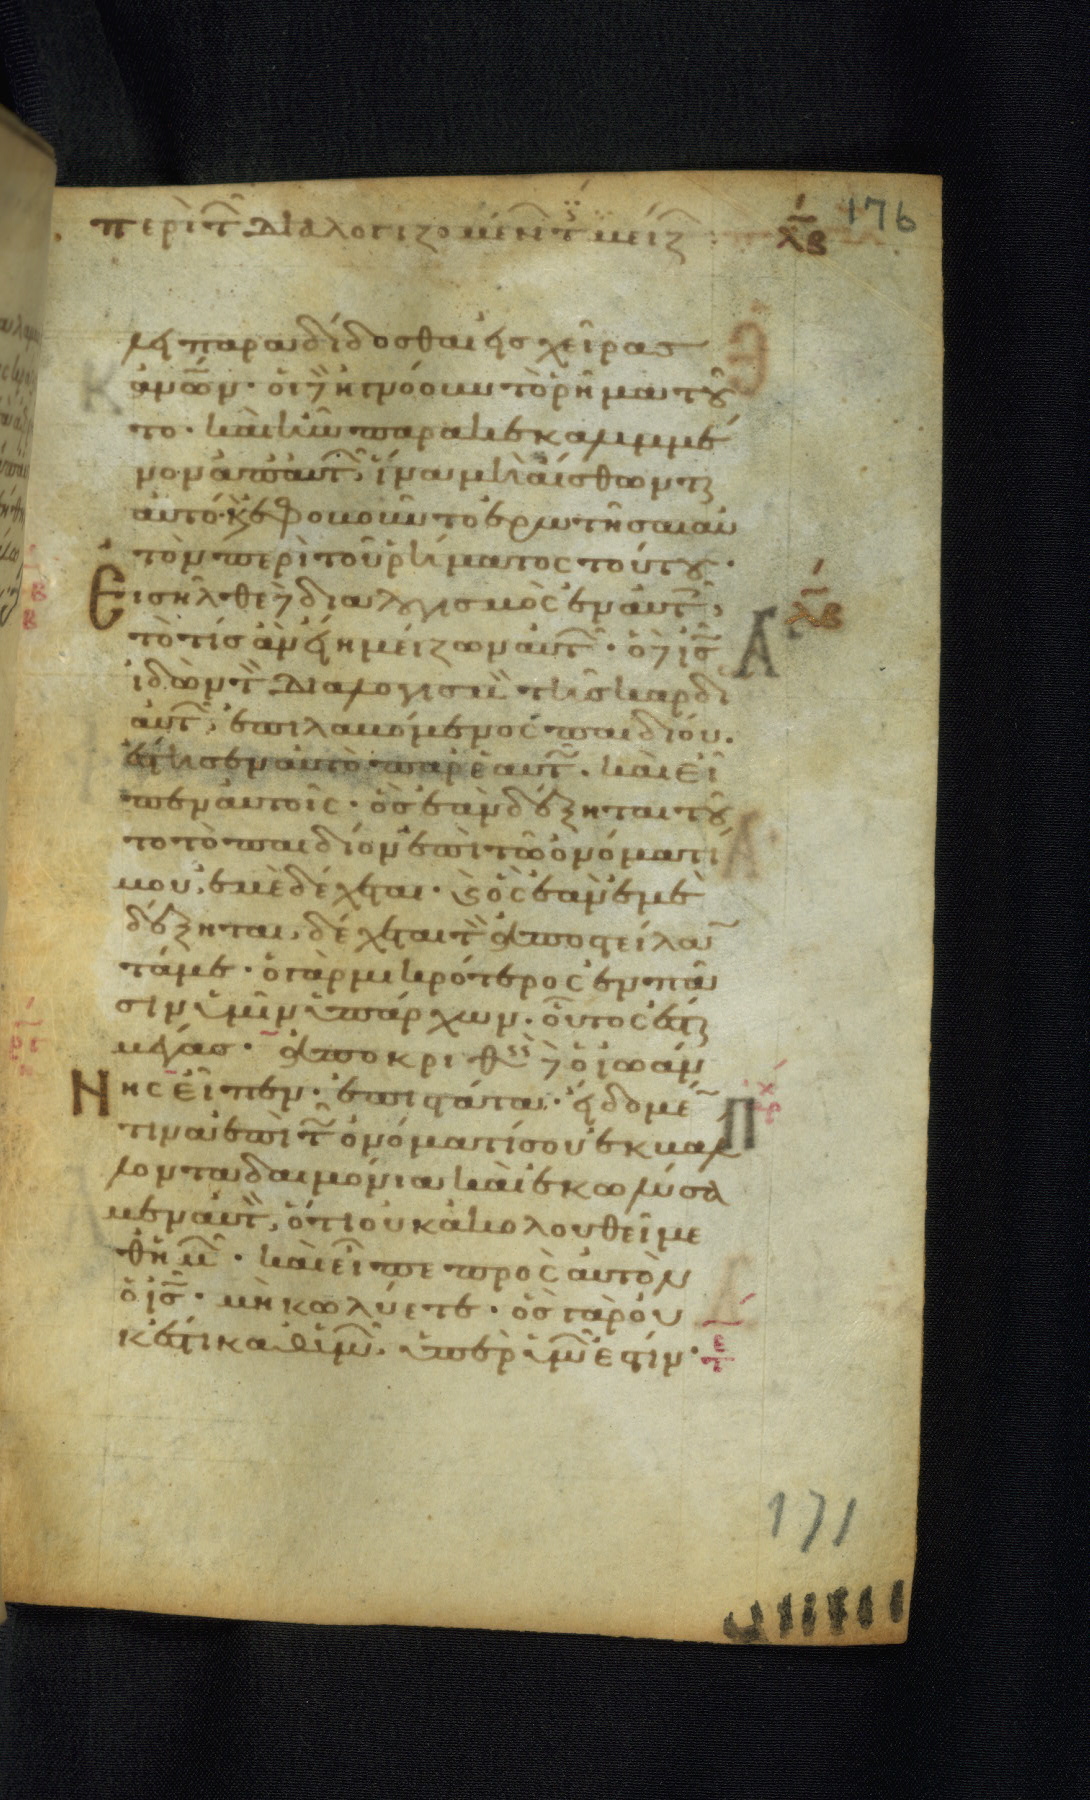 περὶ τ διαλογιζομένων τίς μείζ
λβ
176
λει παραδίδοσθαι εἰς χεῖρας
ἀνων· οἱ δὲ ἠγνόουν τὸ ρῆμα τοῦ
το· καὶ ἦν παρακεκαλυμμέ
νον ἀπ αὐτ, ἵνα μὴ αἴσθωνται
αὐτό· καὶ ἐφοβοῦντο ἐρωτῆσαι αυ
τὸν περὶ τοῦ ρήματος τούτου·
Εισῆλθε δὲ διαλογισμὸς ἐν αὐτ,
λβ
τὸ τίς ἂν εἴη μείζων αὐτ· ὁ δὲ ις
ἰδὼν τ διαλογισμ τῆς καρδι
αὐτ, ἐπιλαβόμενος παιδίου.
ἔστησεν αὐτὸ παρ ἑαυτ· καὶ εἶ
πεν αὐτοῖς· ὃς ἐὰν δέξηται τοῦ
το τὸ παιδίον ἐπὶ τῶ ὀνόματί
μου, ἐμὲ δέχεται· καὶ ὃς ἐὰν ἐμὲ
δέξηται, δέχεται τ ἀποστείλαν
τά με· ὁ γὰρ μικρότερος ἐν πᾶ
σιν ὑμῖν ὑπάρχων. οὗτος ἐστι
μέγας· ἀποκριθεὶς δὲ ὁ ἰωάν
Νης εἶπεν· ἐπιστάτα· εἴδομέν
τινα ἐπὶ τ ὀνόματί σου ἐκβαλ
λοντα δαιμόνια καὶ ἐκωλύσα
μεν αὐτ, ὅτι οὐκ ἀκολουθεῖ με
θ ημ· καὶ εἶπε πρὸς αὐτὸν
ὁ ις· μὴ κωλύετε· ὃς γὰρ οὐ
κ ἔστι καθ ὑμ, ὑπὲρ ὑμ ἐστίν·
171